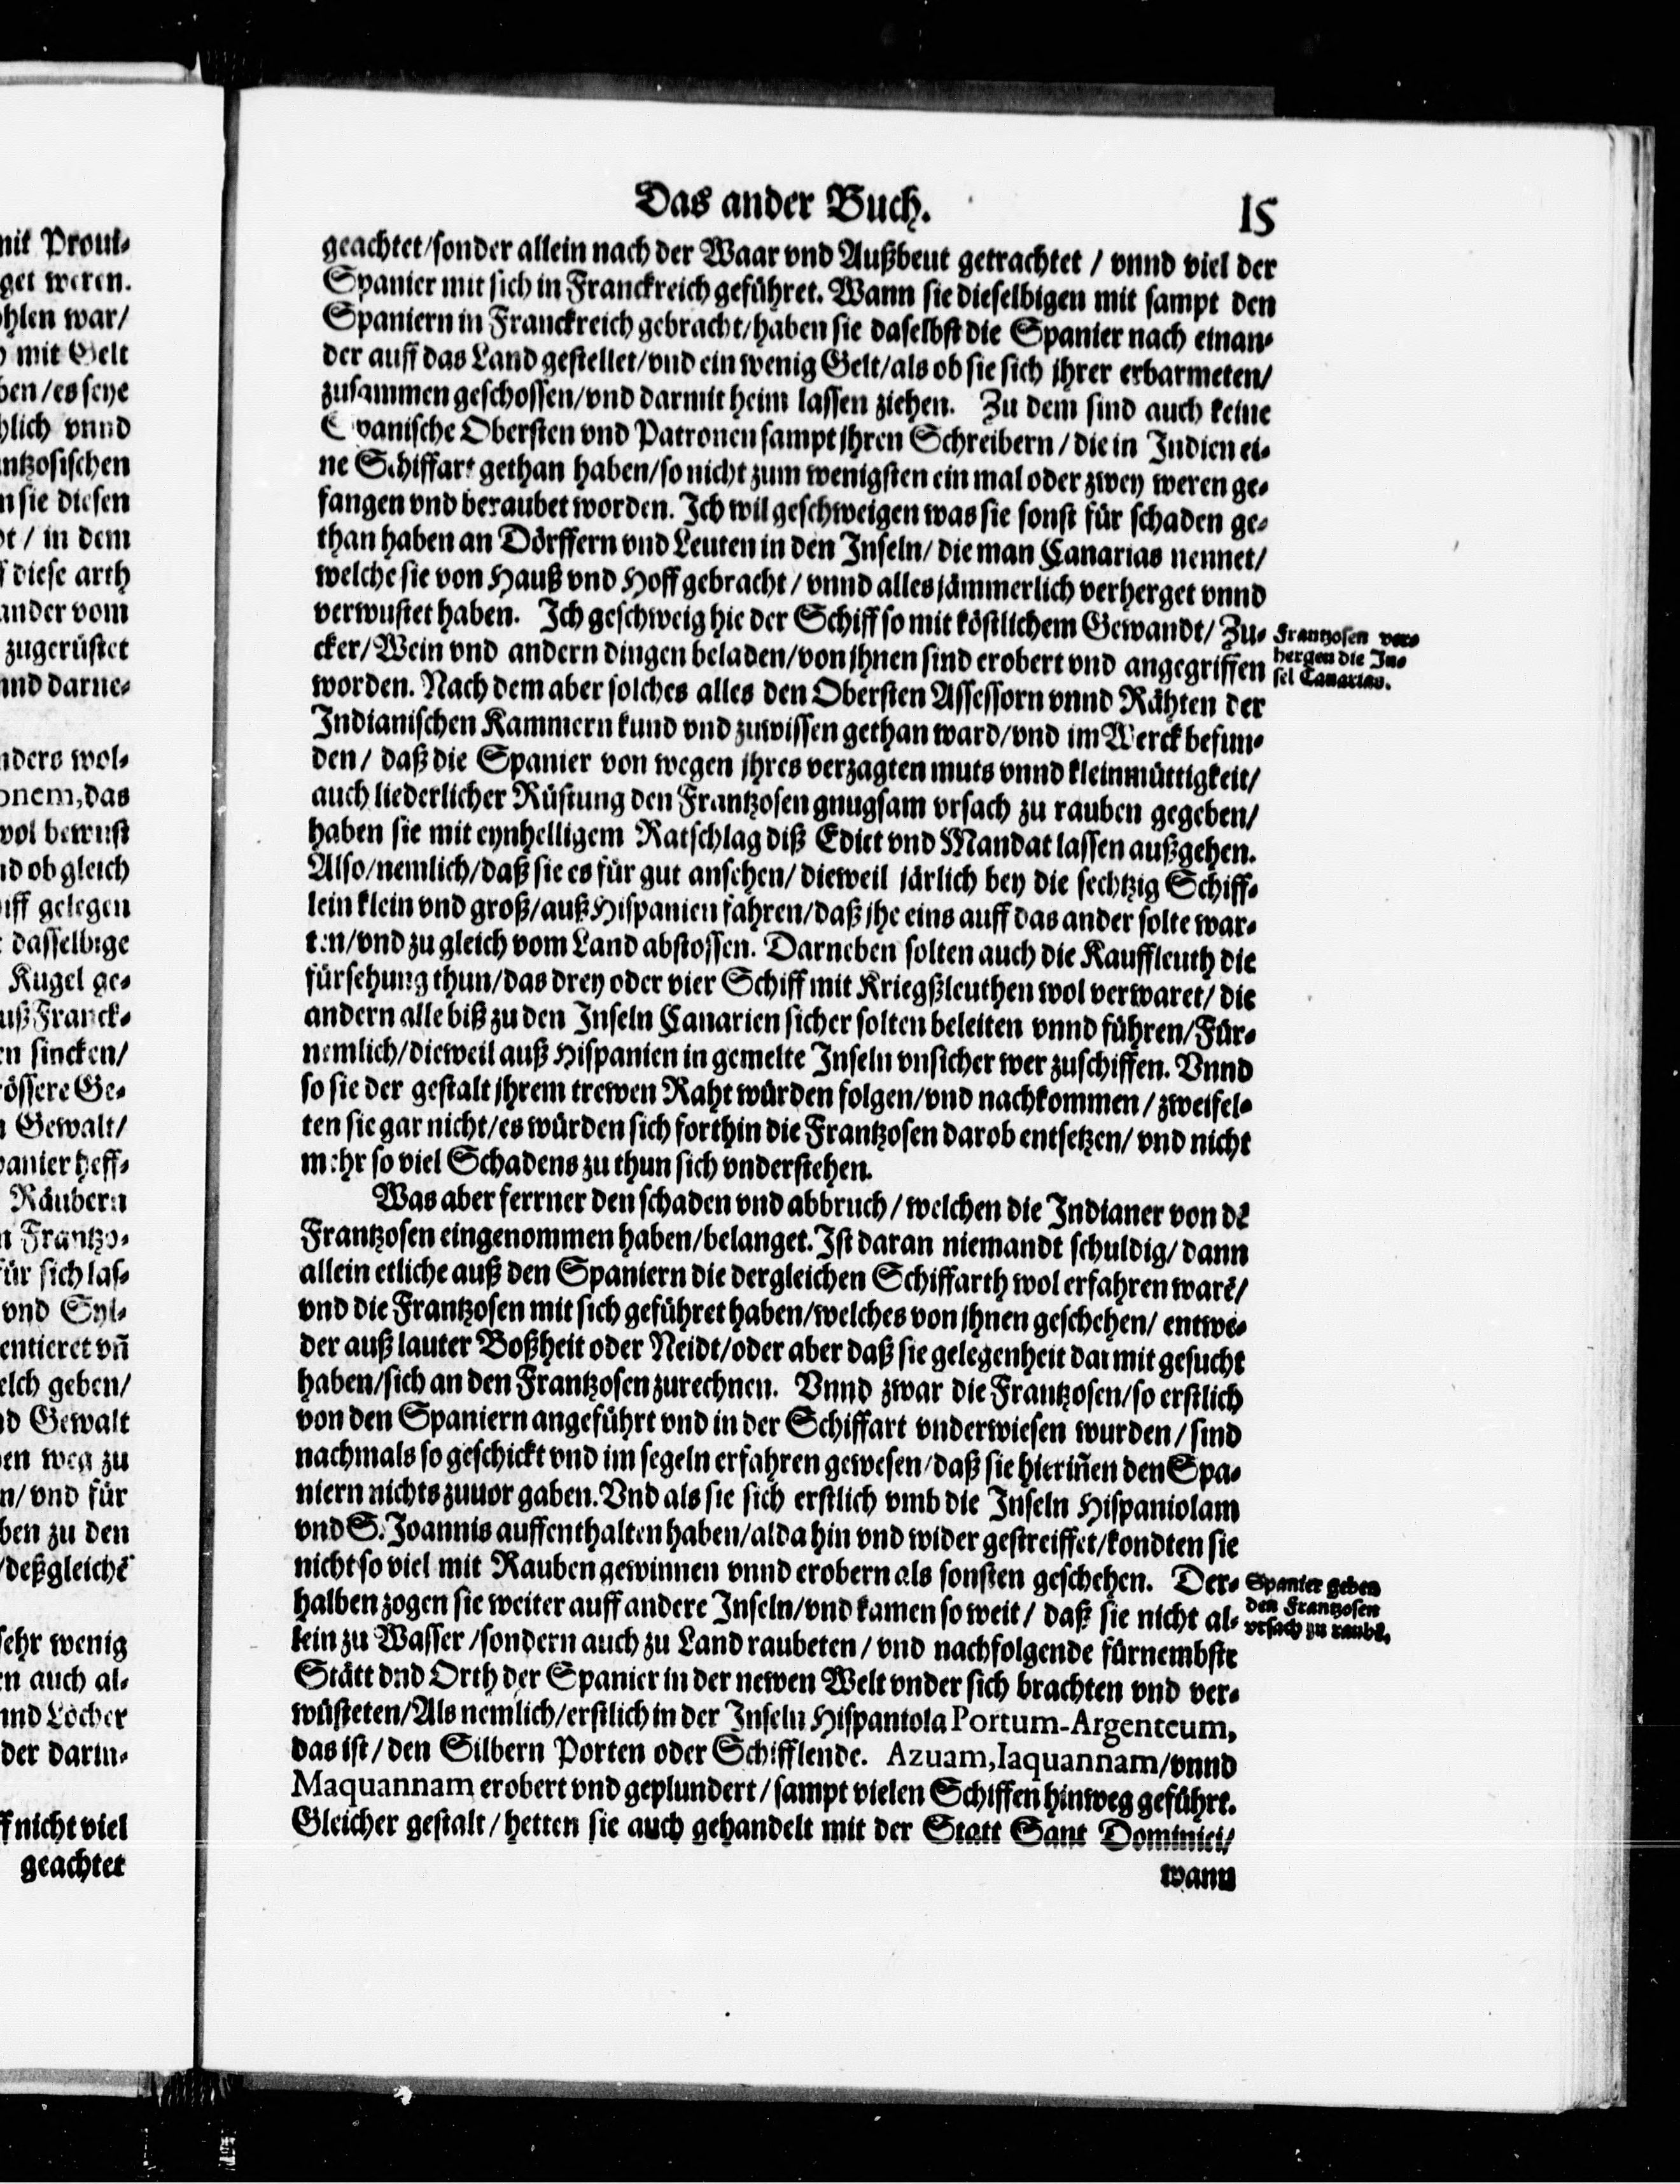 Das ander Buch. 15
geachtet/sonder allein nach der Waar vnd Außbeut getrachtet / vnnd viel der
Spanier mit sich in Franckreich geführet. Wann sie dieselbigen mit sampt den
Spaniern in Franckreich gebracht/haben sie daselbst die Spanier nach einan-
der auff das Land gestellet/vnd ein wenig Gelt/als ob sie sich jhrer erbarmeten/
zusammen geschossen/vnd darmit heim lassen ziehen. Zu dem sind auch keine
Spanische Obersten vnd Patronen sampt jhren Schreibern / die in Indien ei-
ne Schiffart gethan haben/so nicht zum wenigsten ein mal oder zwey weren ge-
fangen vnd beraubet worden. Ich wil geschweigen was sie sonst für schaden ge-
than haben an Dörffern vnd Leuten in den Inseln/ die man Canarias nennet/
welche sie von Hauß vnd Hoff gebracht / vnnd alles jämmerlich verherget vnnd
verwustet haben. Ich geschweig hie der Schiff so mit köstlichem Gewandt/ Zu-
cker/Wein vnd andern dingen beladen/von jhnen sind erobert vnd angegriffen
worden. Nach dem aber solches alles den Obersten Assessorn vnnd Rähten der
Indianischen Kammern kund vnd zuwissen gethan ward/vnd im Werck befun-
den/ daß die Spanier von wegen jhres verzagten muts vnnd kleinmüttigkeit/
auch liederlicher Rüstung den Frantzosen gnugsam vrsach zu rauben gegeben/
haben sie mit eynhelligem Ratschlag diß Edict vnd Mandat lassen außgehen.
Also/nemlich/daß sie es für gut ansehen/ dieweil järlich bey die sechtzig Schiff-
lein klein vnd groß/auß Hispanien fahren/daß jhe eins auff das ander solte war-
ten/vnd zu gleich vom Land abstossen. Darneben solten auch die Kauffleuth die
fürsehung thun/das drey oder vier Schiff mit Kriegßleuthen wol verwaret/ die
andern alle biß zu den Inseln Canarien sicher solten beleiten vnnd führen/Für-
nemlich/dieweil auß Hispanien in gemelte Inseln vnsicher wer zuschiffen. Vnnd
so sie der gestalt jhrem trewen Raht würden folgen/vnd nachkommen / zweifel-
ten sie gar nicht/es würden sich forthin die Frantzosen darob entsetzen/ vnd nicht
mehr so viel Schadens zu thun sich vnderstehen.
Was aber ferrner den schaden vnd abbruch / welchen die Indianer von dē
Frantzosen eingenommen haben/belanget. Ist daran niemandt schuldig/ dann
allein etliche auß den Spaniern die dergleichen Schiffarth wol erfahren warē/
vnd die Frantzosen mit sich geführet haben/welches von jhnen geschehen/ entwe-
der auß lauter Boßheit oder Neidt/oder aber daß sie gelegenheit darmit gesucht
haben/sich an den Frantzosen zurechnen. Vnnd zwar die Frantzosen/so erstlich
von den Spaniern angeführt vnd in der Schiffart vnderwiesen wurden / sind
nachmals so geschickt vnd im segeln erfahren gewesen/daß sie hieriñen den Spa-
niern nichts zuuor gaben. Vnd als sie sich erstlich vmb die Inseln Hispaniolam
vnd S. Joannis auffenthalten haben/alda hin vnd wider gestreiffet/kondten sie
nicht so viel mit Rauben gewinnen vnnd erobern als sonsten geschehen. Der-
halben zogen sie weiter auff andere Inseln/vnd kamen so weit / daß sie nicht al-
lein zu Wasser /sondern auch zu Land raubeten / vnd nachfolgende fürnembste
Stätt dnd Orth der Spanier in der newen Welt vnder sich brachten vnd ver-
wüsteten/Als nemlich/erstlich in der Inseln Hispaniola Portum-Argenteum,
das ist / den Silbern Porten oder Schifflende. Azuam,Iaquannam/vnnd
Maquannam erobert vnd geplundert / sampt vielen Schiffen hinweg geführt.
Gleicher gestalt / hetten sie auch gehandelt mit der Statt Sant Dominici/
wann
Frantzosen ver-
hergen die In-
sel Canarias.
Spanier geben
den Frantzosen
vrsach zu raubē.
mit Proui-
get weren.
ohlen war/
mit Gelt
ben/es seye
hlich vnnd
antzosischen
n sie diesen
t / in dem
diese arth
ander vom
zugerüstet
nnd darne-
nders wol-
onem,das
wol bewust
nd ob gleich
iff gelegen
dasselbige
Kugel ge-
uß Franck-
en sincken/
rössere Ge-
Gewalt/
panier heff-
Räubern
n Frantzo-
für sich las-
vnd Syl-
entieret vñ
elch geben/
nd Gewalt
en weg zu
n/ vnd für
ben zu den
/deßgleichē
sehr wenig
en auch al-
nnd Löcher
der darin-
ff nicht viel
geachtet